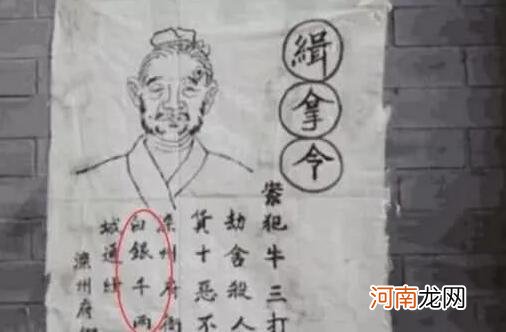 緝拿令
案犯牛三打
劫舍殺人
貨十惡不
州府衙
白銀千兩
城通緝
滦州府
河南龙网